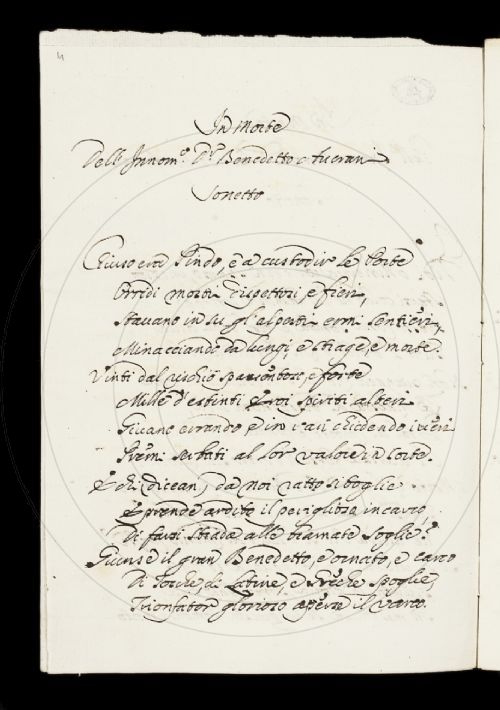 In Morte
Dell'Innom.o Dr Benedetto Averani
Sonetto
Chiuso era Pindo, e a custodir le Porte
Orridi mostri dispettosi, e fieri,
Stavano in su gl'alpestri ermi sentieri,
Minacciando da lungi e strage, e morte.
Vinti dal rischio spaventoso, e forte
Mille d'estinti Eroi spiriti alteri
Givano errando, chiedendo i veri
Premi serbati al lor valore in sorte.
E chi, dicean, da noi ratto si toglie
E prende ardito il periglioso incarco
Di farsi strada alle bramate soglie?
Giunse il gran Benedetto, e ornato, e carco
Di Tosche, di Latine, e Greche spoglie
Trionfator glorioso aperse il varco.